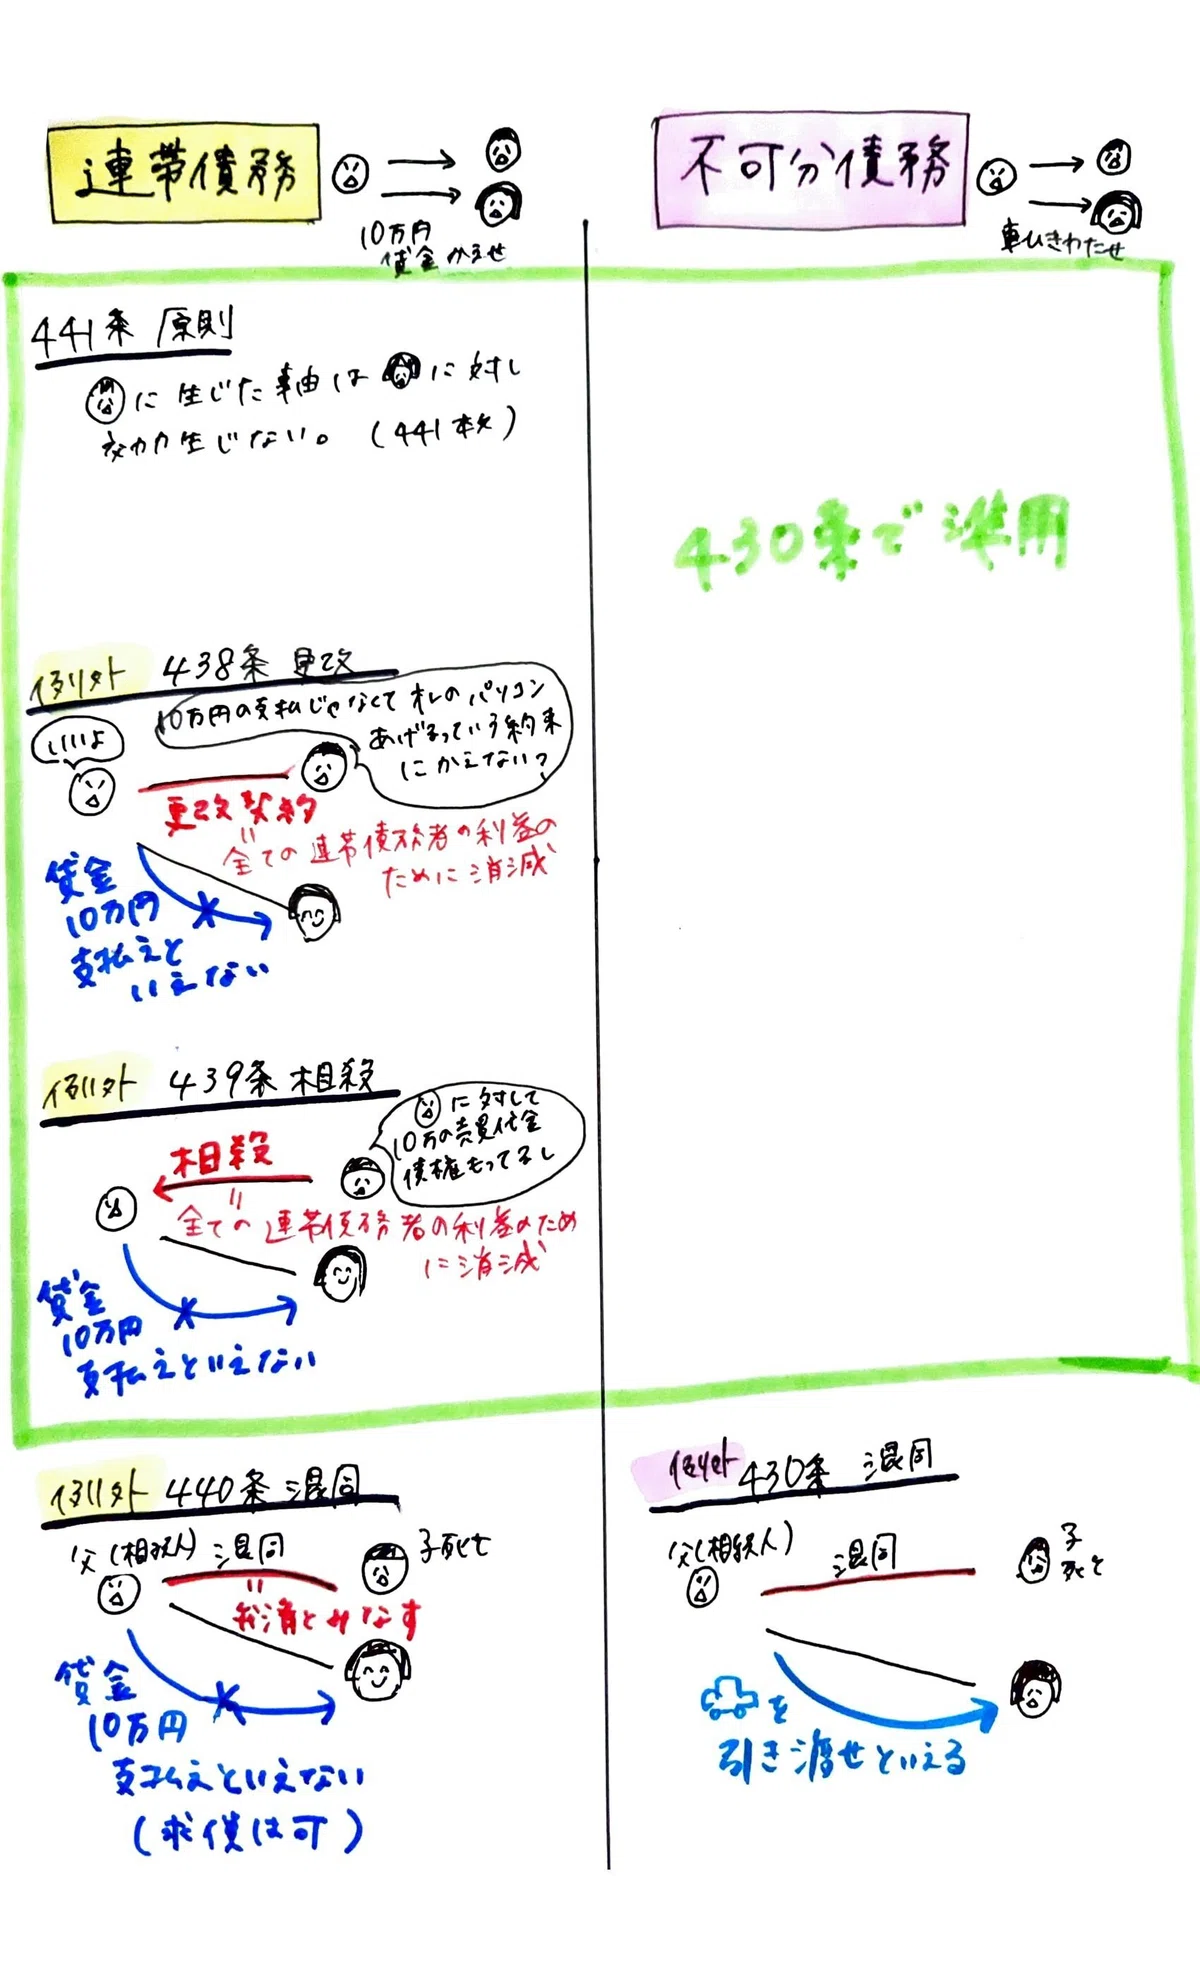 連帯債務
10万円
貸金かえせ
不可分債務
車ひきわたせ
441条 原則
に生じた事由は に対し
効力生じない。(441本文)
430条で準用
例外 438条 更改
いいよ
10万円の支払じゃなくてオレのパソコン
あげるっていう約束
にかえない?
更改契約
〃
全ての連帯債務者の利益の
ために消滅
貸金
10万円
支払えと
いえない
例外 439条 相殺
に対して
10万の売買代金
債権もってるし
相殺
〃
全ての連帯債務者の利益のため
に消滅
貸金
10万円
支払えといえない
例外 440条 混同
父(相続人) 混同 子死亡
〃
弁済とみなす
貸金
10万円
支払えといえない
(求償は可)
例外 430条 混同
父(相続人) 混同 子
死亡
を
引き渡せといえる